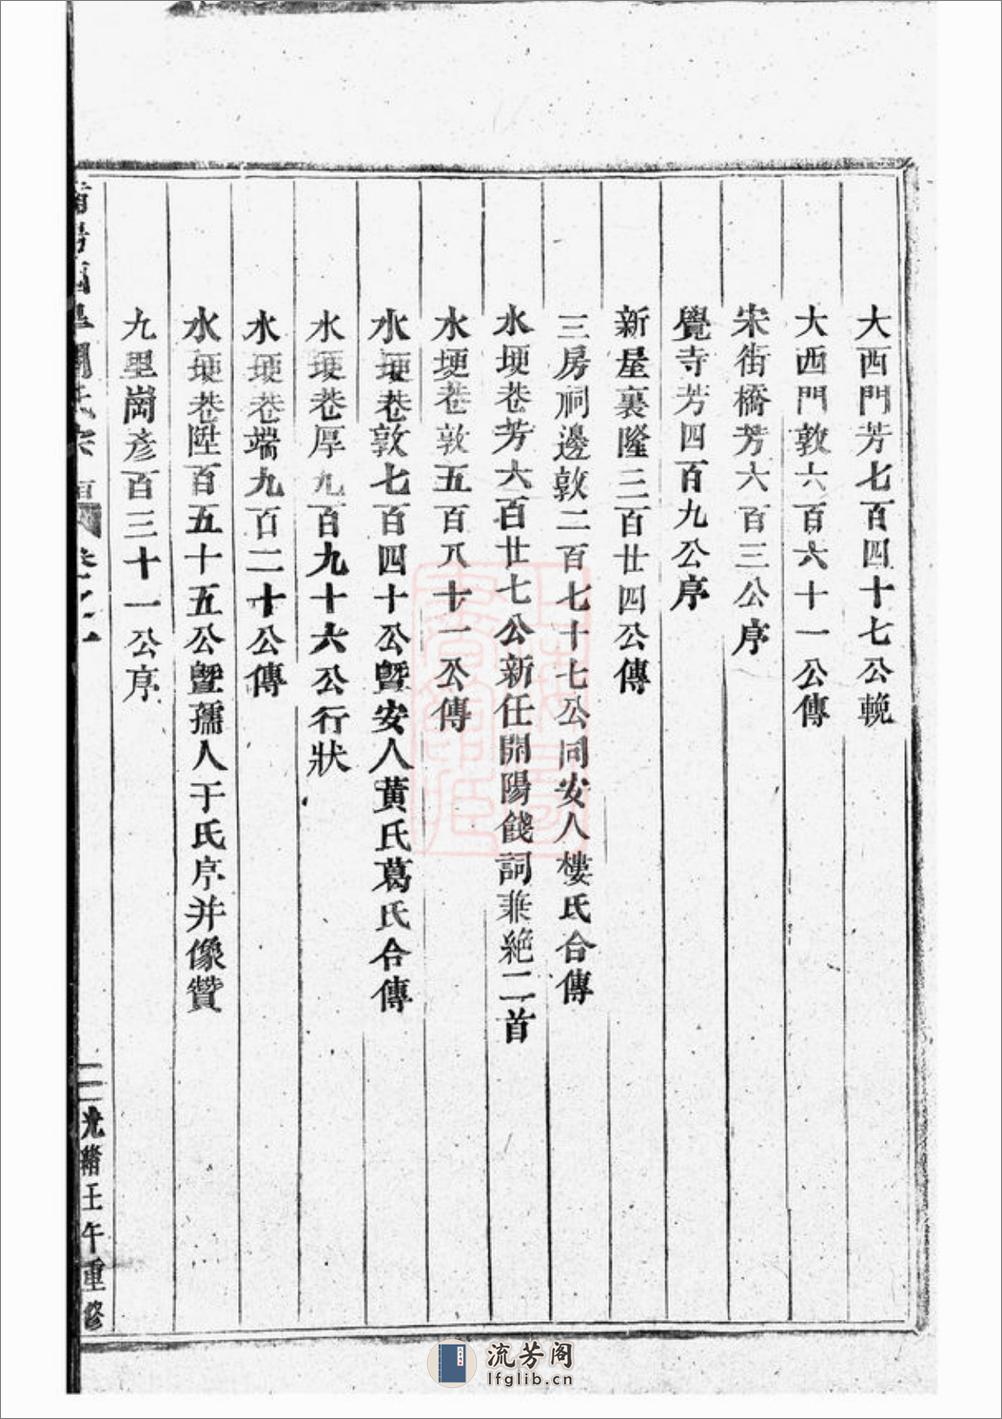 大西門芳七百四十七公輓
大西門敦六百六十一公傳
宋街橋芳六百三公序
覺寺芳四百九公序
新屋裏隆三百廿四公傳
三房祠邊敦二百七十七公同安人樓氏合傳
水埂巷芳六百廿七公新任開陽餞詞兼絕二首
水埂巷敦五百八十一公傳
水埂巷敦七百四十公暨安人黃氏葛氏合傳
水埂巷厚九百九十六公行狀
水埂巷端九百二十公傳
水埂巷陞百五十五公暨孺人于氏序并像贊
九里崗彥百三十一公序
氏宗 卷之一 二 光緒壬午重修
流芳阁
lfglib.cn